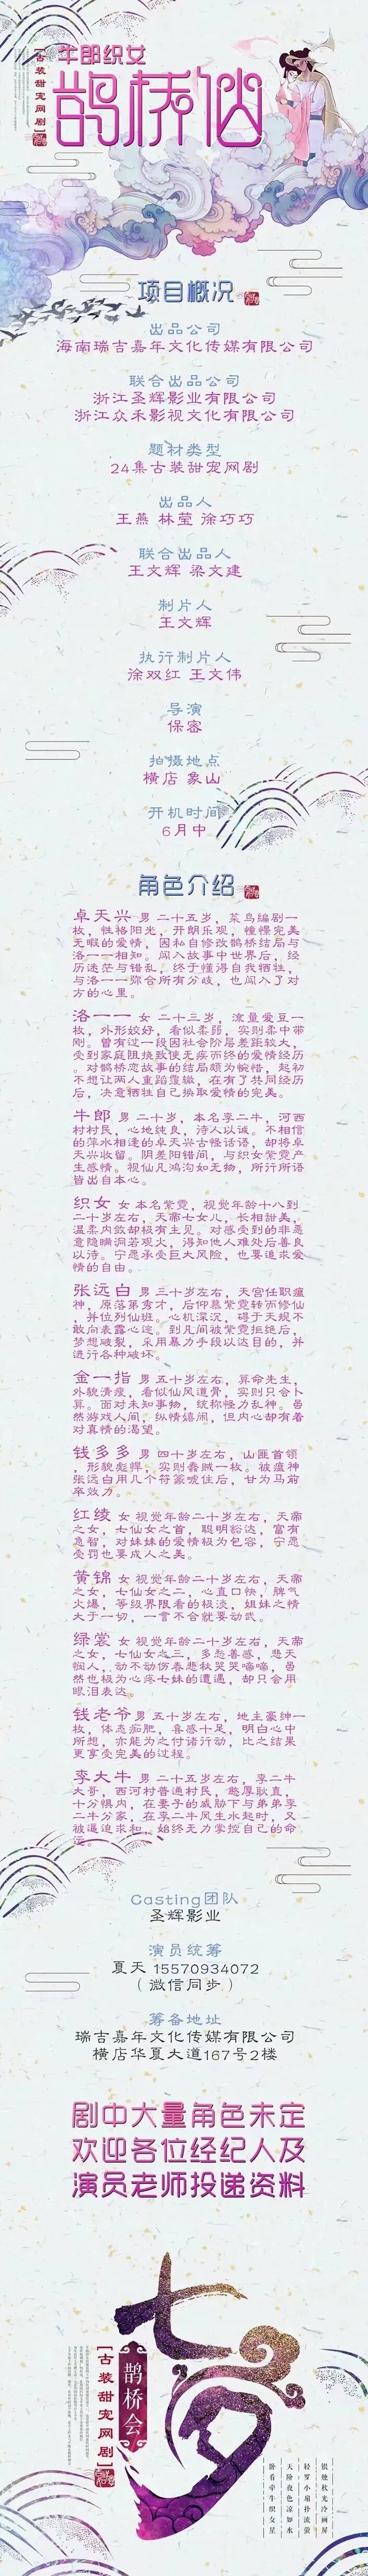 牛郎织女
鹊桥仙
【古装甜宠网剧】
项目概况
出品公司
海南瑞吉嘉年文化传媒有限公司
联合出品公司
浙江圣辉影业有限公司
浙江众禾影视文化有限公司
题材类型
24集古装甜宠网剧
出品人
王燕 林莹 涂巧巧
联合出品人
王文辉 梁文建
制片人
王文辉
执行制片人
徐双红 王文伟
导演
保密
拍摄地点
横店 象山
开机时间
6月中
角色介绍
卓天兴 男 二十五岁，菜鸟编剧一
枚，性格阳光，开朗乐观，憧憬完美
无暇的爱情，因私自修改鹊桥结局与
洛一一相知。闯入故事中世界后，经
历迷茫与错乱，终于懂得自我牺牲，
与洛一一弥合所有分歧，也闯入了对
方的心里。
洛一一 女 二十三岁，流量爱豆一
枚，外形姣好，看似柔弱，实则柔中带
刚。曾有过一段因社会阶层差距较大，
受到家庭阻挠致使无疾而终的爱情经历
。对鹊桥恋故事的结局颇为惋惜，起初
不想让两人重蹈覆辙，在有了共同经历
后，决意牺牲自己换取爱情的完美。
牛郎 男 二十岁，本名李二牛，河西
村村民，心地纯良，待人以诚。不相信
的萍水相逢的卓天兴古怪话语，却将卓
天兴收留。阴差阳错间，与织女紫霓产
生感情。视仙凡鸿沟如无物，所行所语
皆出自本心。
织女 女 本名紫霓，视觉年龄十八到
二十岁左右，天帝七女儿，长相甜美，
温柔内敛却极有主见。对感受到的非恶
意隐瞒洞若观火，得知他人难处后善良
以待。宁愿承受巨大风险，也要追求爱
情的自由。
张远白 男 三十岁左右，天宫任职瘟
神，原落第秀才，后仰慕紫霓转而修仙
，并位列仙班。心机深沉，碍于天规不
敢向表露心迹。到凡间被紫霓拒绝后，
梦想破裂，采用暴力手段以达目的，并
进行各种破坏。
金一指 男 五十岁左右，算命先生，
外貌清瘦，看似仙风道骨，实则只会卜
算。面对未知事物，统称怪力乱神。虽
然游戏人间，纵情嬉闹，但内心却有着
对真情的渴望。
钱多多 男 四十岁左右，山匪首领
，形貌彪悍，实则蠢贼一枚。被瘟神
张远白用几个符箓唬住后，甘为马前
卒效力。
红绫 女 视觉年龄二十岁左右，天帝
之女，七仙女之首，聪明豁达，富有
急智，对妹妹的爱情极为包容，宁愿
受罚也要成人之美。
黄锦 女 视觉年龄二十岁左右，天帝
之女，七仙女之二，心直口快，脾气
火爆，等级界限看的极淡，姐妹之情
大于一切，一言不合就要动武。
绿裳 女 视觉年龄二十岁左右，天帝
之女，七仙女之三，多愁善感，悲天
悯人，动不动伤春悲秋哭哭啼啼，虽
然也极为心疼七妹的遭遇，却只会用
眼泪表达。
钱老爷 男 五十岁左右，地主豪绅一
枚，体态痴肥，喜感十足，明白心中
所想，亦能为之付诸行动，比之结果
更享受完美的过程。
李大牛 男 二十五岁左右，李二牛
大哥，西河村普通村民，憨厚耿直，
十分惧内，在妻子的威胁下与弟弟李
二牛分家，在李二牛风生水起时，又
被逼迫求和，始终无力掌控自己的命
运。
Casting团队
圣辉影业
演员统筹
夏天 15570934072
（微信同步）
筹备地址
瑞吉嘉年文化传媒有限公司
横店华夏大道167号2楼
剧中大量角色未定
欢迎各位经纪人及
演员老师投递资料
七夕
鹊桥会
【古装甜宠网剧】
银烛秋光冷画屏
轻罗小扇扑流萤
天阶夜色凉如水
卧看牵牛织女星